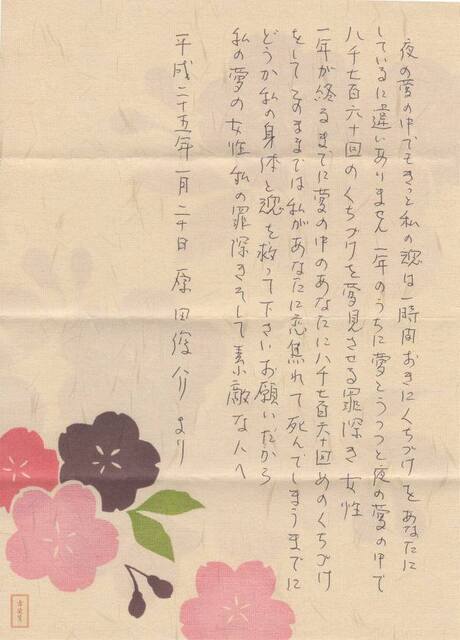 夜の夢の中でもきっと私の魂は一時間おきにくちづけをあなたに
しているに違いありません一年のうちに夢とうつつと夜の夢の中で
八千七百六十回のくちづけを夢見させる罪深き女性
一年が終るまでに夢の中のあなたに八千七百六十回めのくちづけ
をしてこのままでは私があなたに恋焦れて死んでしまうまでに
どうか私の身体と魂を救って下さいお願いだから
私の夢の女性私の罪深きそして素敵な人へ
平成二十五年一月二十日 原田俊介より